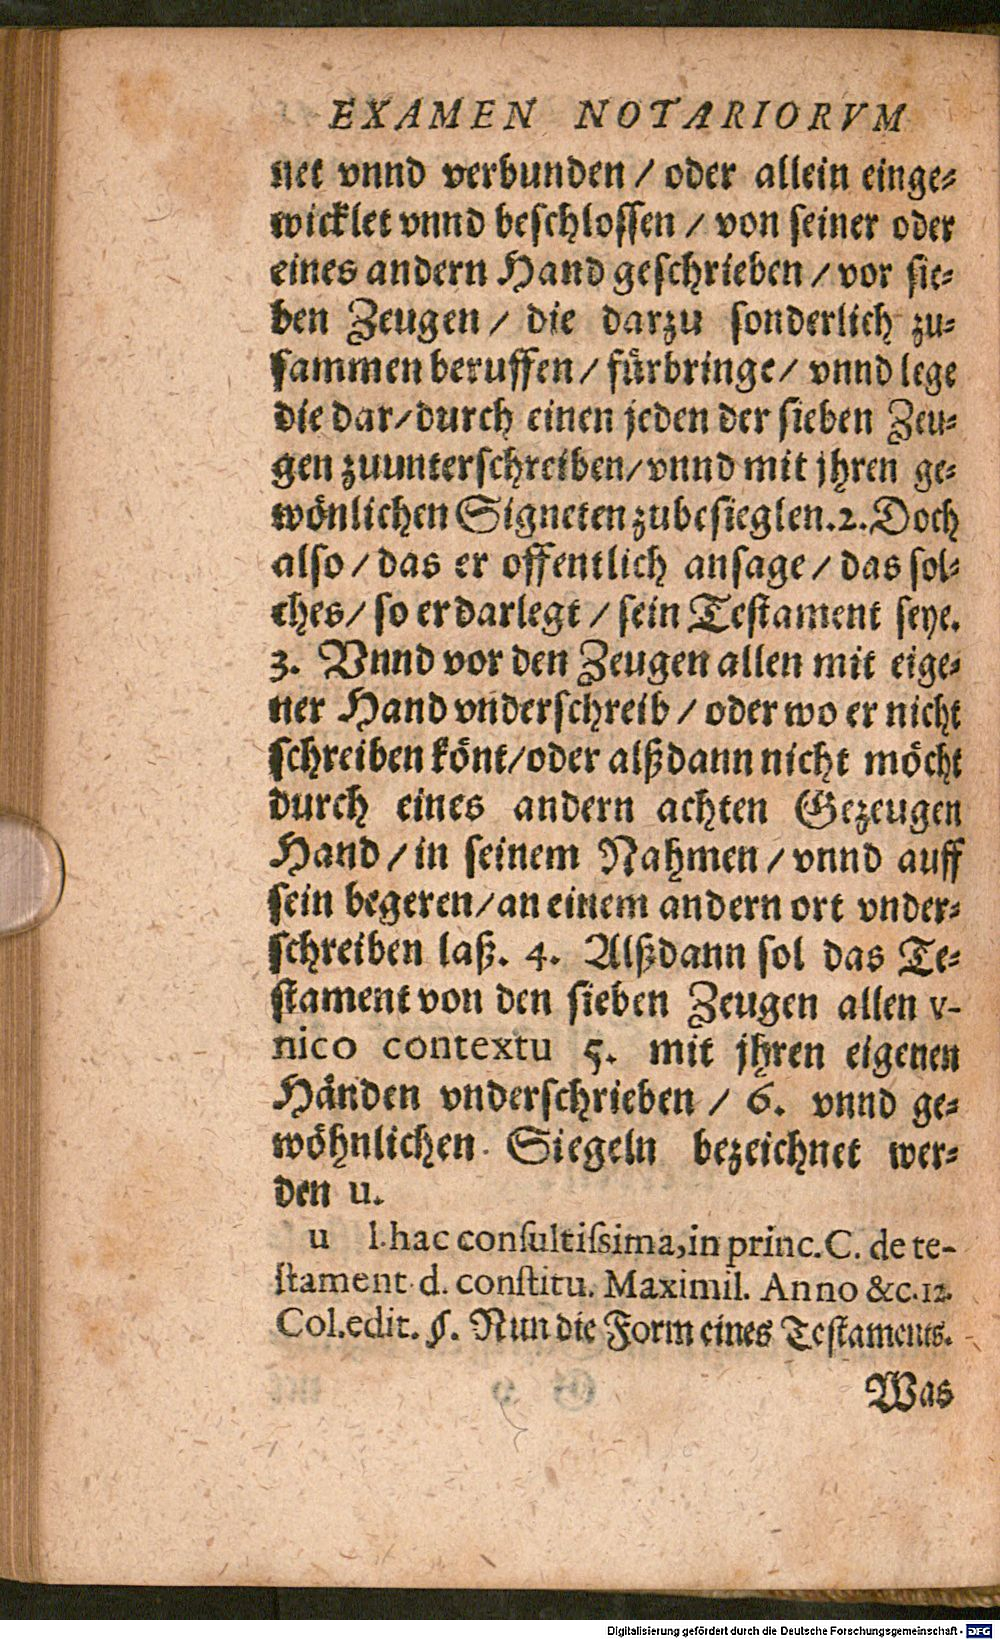 EXAMEN NOTARIORVM
net vnnd verbunden / oder allein einge-
wicklet vnnd beschlossen / von seiner oder
eines andern Hand geschrieben / vor sie-
ben Zeugen / die darzu sonderlich zu-
sammen beruffen / fürbringe / vnnd lege
die dar / durch einen jeden der sieben Zeu-
gen zuunterschreiben / vnnd mit jhren ge-
wönlichen Signeten zubesieglen. 2. Doch
also / das er offentlich ansage / das sol-
ches / so er darlegt / sein Testament seye.
3. Vnnd vor den Zeugen allen mit eige-
ner Hand vnderschreib / oder wo er nicht
schreiben könt / oder alßdann nicht möcht
durch eines andern achten Gezeugen
Hand / in seinem Nahmen / vnnd auff
sein begeren / an einem andern ort vnder-
schreiben laß. 4. Alßdann sol das Te-
stament von den sieben Zeugen allen v-
nico contextu 5. mit jhren eigenen
Händen vnderschrieben / 6. vnnd ge-
wöhnlichen Siegeln bezeichnet wer-
den u.
u l. hac consultissima, in princ. C. de te-
stament. d. constitu. Maximil. Anno &c. 12.
Col. edit. §. Nun die Form eines Testaments.
Was
Digitalisierung gefördert durch die Deutsche Forschungsgemeinschaft - DFG